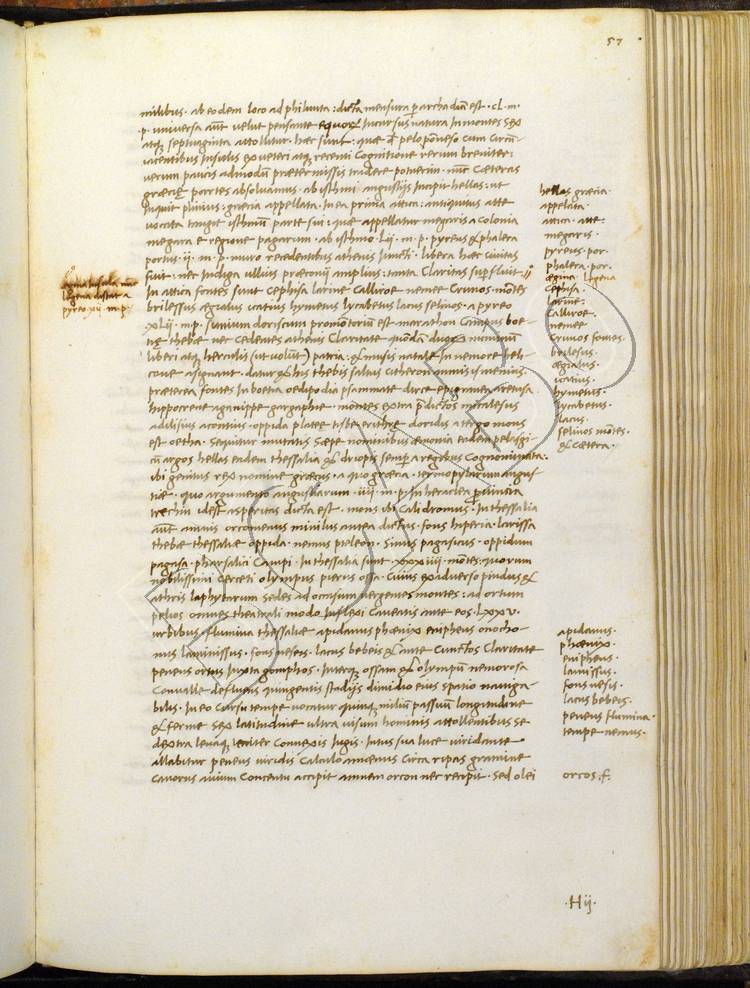 57
milibus· ab eodem loco ad philunta: dicta mensura p archadiā est· cl· m·
·p· universa aūt velut pensante equorꝝ incursus natura in montes sex
atqꝫ septuaginta attollitur· hæc sunt quæ d̄ peloponeso cum circū-
iacentibus insulis ex veteri atqꝫ recenti cognitione rerum breviter·
verum paucis admodū prætermissis tradere potuerim· nūc cæteras
græciæ partes absolvamus· ab isthmi angustijs incipit hellas: ut
inquit plinius· græcia appellata· in ea prima attica: antiquitus atte
vocata tangit isthmū parte sui: quæ appellatur megaris a colonia
megara e regione pagarum· ab isthmo· lij· m· p· pyreus & phalera
portus· ij· m· p· muro recedentibus athenis iuncti· libera hæc civitas
fuit· nec indiga ullius præconij amplius: tanta claritas supfluit·
in attica fontes sunt cephisa larine calliroe nemee crunos· mōtes
brilessus ægialus icarius hymetus lycabetus lacus selinos· a pyreo
xlij· m·p· sunium doriscum promōtoriū est· marathon campus boe-
tiæ thebæ nec cedentes athenis claritate quōdā duoꝝ numinū
liberi atqꝫ herculis (ut volūt) patria: & musis natale in nemore heli-
cone assignant· datur & his thebis saltus citheron amnis ismenius·
præterea fontes in boetia oedipodia psammate dirce epigranea aretusa
hippocrene aganippe gargaphie· montes extra p̄dictos micalesus
adilisius acontius· oppida plateæ tisbe erithræ· doridis a tergo mons
est oetha· sequitur mutatis sæpe nominibus æmonia eadem pelasgi-
cū argos hellas eadem thessalia & driopis semp a regibus cognominata:
ibi genitus rex nomine græcus· a quo græcia· termopylarum angus-
tiæ· quo argumento angustiarum· iiij· m· p· in heraclea p
trechin idest asperitas dicta est· mons ibi calidromus· in thessalia
aūt amnis orcomenus minilus antea dictus· fons hiperia· larissa
thebæ thessaliæ oppida· nemus pteleon· sinus pagasicus· oppidum
pagasa· pharsalici campi· in thessalia sunt· xxxiiij· mōtes: quorum
nobilissimi cerceti olympus pierus ossa· cuius ex adverso pindus &
othris laphytarum sedes ad occasum vergentes montes: ad ortum
pelios omnes theatrali modo inflexi caveatis ante eos· lxxv·
urbibus· flumina thessaliæ apidanus phœnix enipheus onocho-
nus laminissus· fons neseis· lacus bebeis & ante cunctos claritate
peneus ortus iuxta gomphos· interqꝫ ossam & olympū nemorosa
convalle defluens quingentis stadijs dimidio eius spatio naviga-
bilis· in eo cursu tempe vocatur quinqꝫ miliū passuū longitudine
& ferme sex latitudine ultra visum hominis attollentibus se
dextra levaqꝫ leniter convexis iugis· intus sua luce viridante
allabitur peneus viridis calculo amœnus circa ripas gramine
canorus avium concentu accipit amnem orcon nec recipit· sed olei
hellas· græcia·
appelata·
attica· atte·
megaris·
pyreus· por·
phalera· por·
ægina· legena
cephisa·
larine·
calliroe·
nemee
crunos fontes·
brilesus·
ægialus·
icarius·
hymetus·
lycabetus·
lacus·
selinos mōtes·
& cætera·
ægina insula nūc
legena distat a
pyreo· xij· m· p·
apidanus·
phœnix·
enipheus·
lamissus·
fons nesis·
lacus bebeis·
peneus flumina·
tempe nemus·
orcos· f·
·Hij·